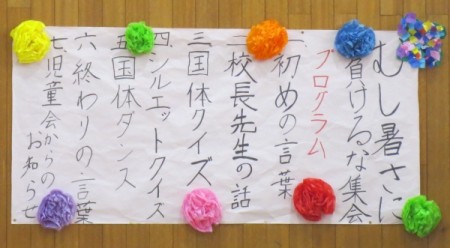 むし暑さに
負けるな集会
プログラム
一.初めの言葉
二.校長先生の話
三.国体クイズ
四.シルエットクイズ
五.国体ダンス
六.終わりの言葉
七.児童会からの
お知らせ